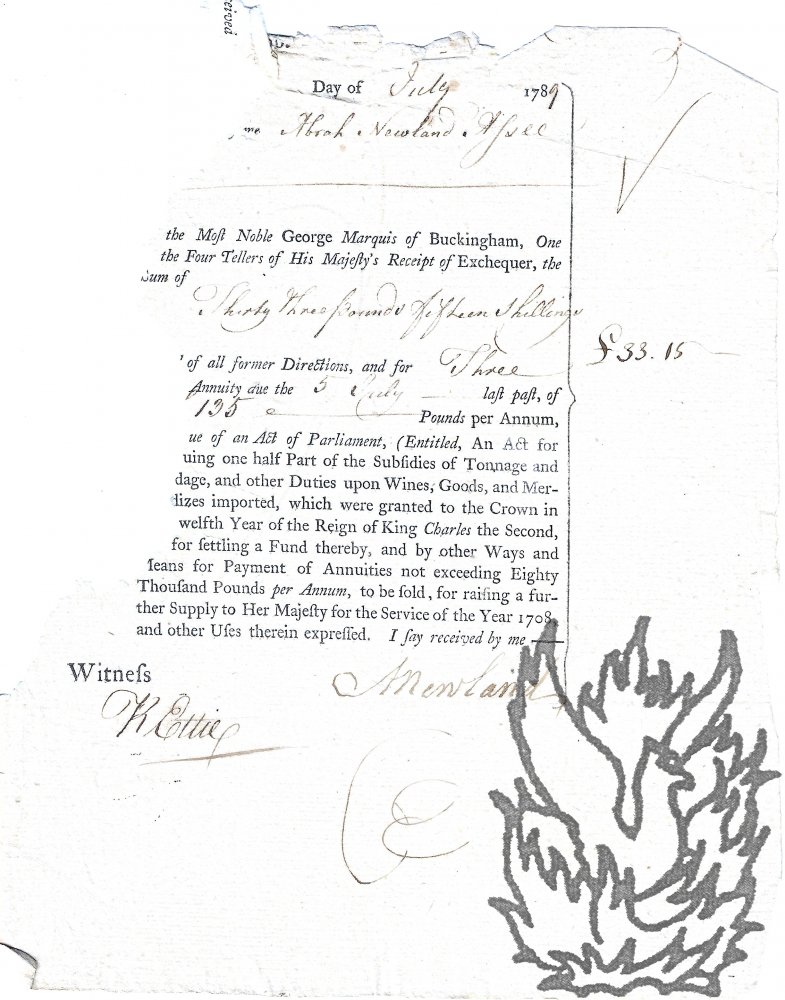 ceived
Day of July 1789
me Abrah Newland Assee
the Moſt Noble George Marquis of Buckingham, One
the Four Tellers of His Majeſty's Receipt of Exchequer, the
Sum of
Thirty three pounds fifteen Shillings
£33.15
of all former Directions, and for Three
Annuity due the 5 July laſt paſt, of
135 Pounds per Annum,
ue of an Act of Parliament, (Entitled, An Act for
uing one half Part of the Subſidies of Tonnage and
dage, and other Duties upon Wines, Goods, and Mer-
dizes imported, which were granted to the Crown in
welfth Year of the Reign of King Charles the Second,
for ſettling a Fund thereby, and by other Ways and
Means for Payment of Annuities not exceeding Eighty
Thouſand Pounds per Annum, to be ſold, for raiſing a fur-
ther Supply to Her Majeſty for the Service of the Year 1708,
and other Uſes therein expreſſed. I ſay received by me
Witneſs
ANewland
K Ettie